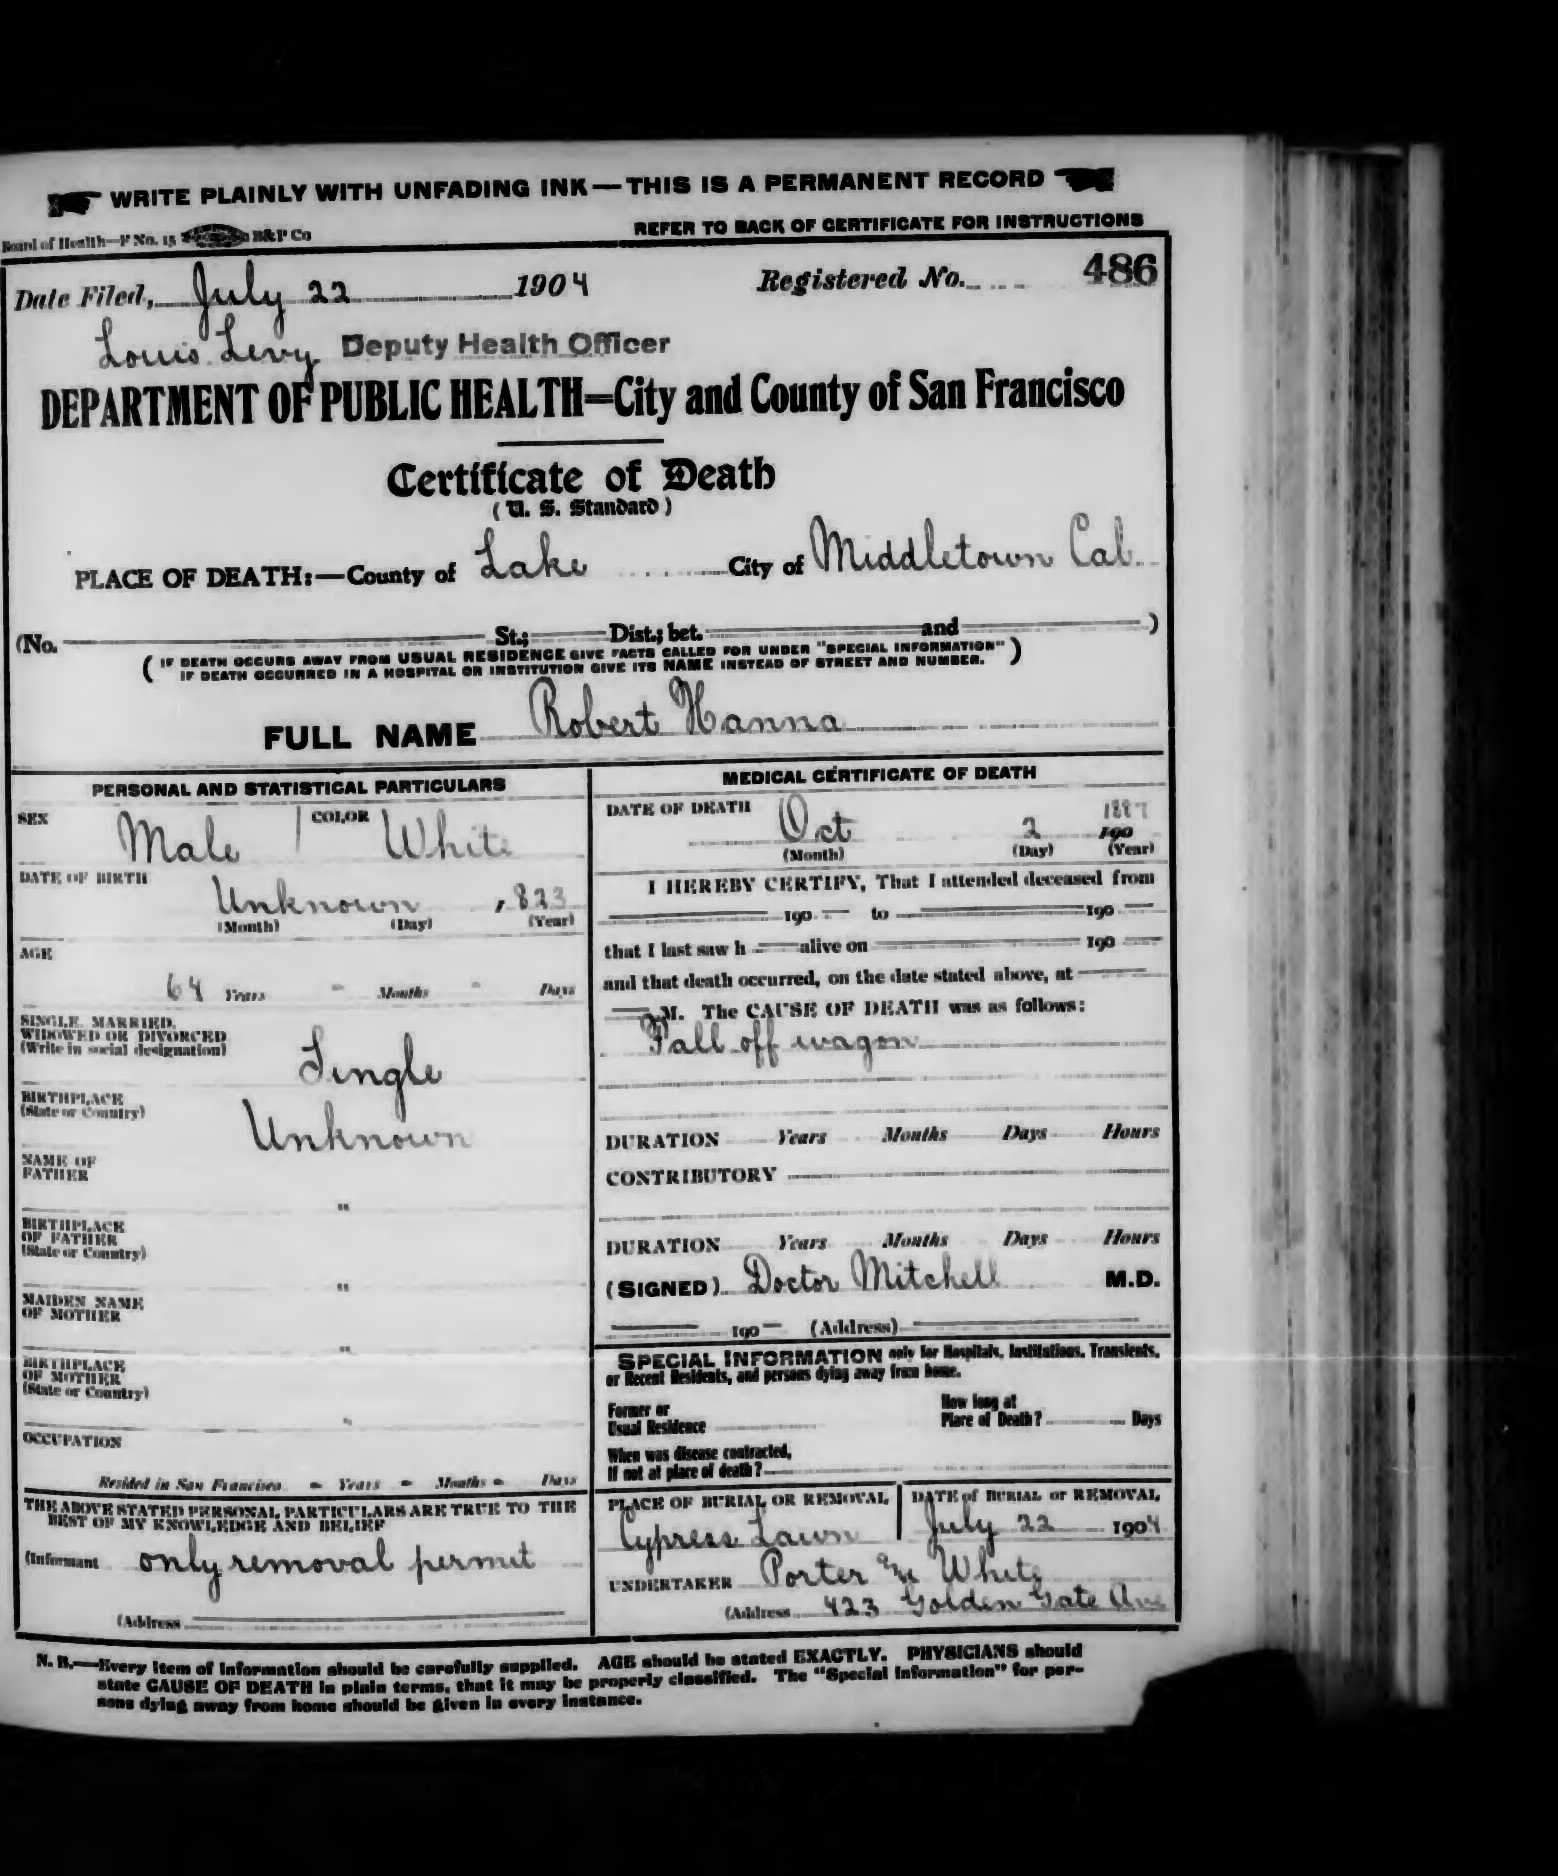 WRITE PLAINLY WITH UNFADING INK—THIS IS A PERMANENT RECORD
Board of Health—F No. 15 B&P Co
REFER TO BACK OF CERTIFICATE FOR INSTRUCTIONS
Date Filed, July 22 1904 Registered No. 486
Louis Levy Deputy Health Officer
DEPARTMENT OF PUBLIC HEALTH=City and County of San Francisco
Certificate of Death
(U. S. Standard)
PLACE OF DEATH:—County of Lake City of Middletown Cal.
(No. St.; Dist.; bet. and )
(IF DEATH OCCURS AWAY FROM USUAL RESIDENCE GIVE FACTS CALLED FOR UNDER "SPECIAL INFORMATION"
IF DEATH OCCURRED IN A HOSPITAL OR INSTITUTION GIVE ITS NAME INSTEAD OF STREET AND NUMBER.)
FULL NAME Robert Hanna
PERSONAL AND STATISTICAL PARTICULARS
SEX Male COLOR White
DATE OF BIRTH
Unknown , 823
(Month) (Day) (Year)
AGE
64 Years - Months - Days
SINGLE, MARRIED,
WIDOWED OR DIVORCED
(Write in social designation)
Single
BIRTHPLACE
(State or Country)
Unknown
NAME OF
FATHER
"
BIRTHPLACE
OF FATHER
(State or Country)
"
MAIDEN NAME
OF MOTHER
"
BIRTHPLACE
OF MOTHER
(State or Country)
"
OCCUPATION
Resided in San Francisco - Years - Months - Days
THE ABOVE STATED PERSONAL PARTICULARS ARE TRUE TO THE
BEST OF MY KNOWLEDGE AND BELIEF
(Informant only removal permit
(Address
MEDICAL CERTIFICATE OF DEATH
DATE OF DEATH
Oct 2 1887 190
(Month) (Day) (Year)
I HEREBY CERTIFY, That I attended deceased from
190 to 190
that I last saw h alive on 190
and that death occurred, on the date stated above, at
M. The CAUSE OF DEATH was as follows:
Fall off wagon
DURATION Years Months Days Hours
CONTRIBUTORY
DURATION Years Months Days Hours
(SIGNED) Doctor Mitchell M.D.
190 (Address)
SPECIAL INFORMATION only for Hospitals, Institutions, Transients,
or Recent Residents, and persons dying away from home.
Former or
Usual Residence
How long at
Place of Death? Days
When was disease contracted,
If not at place of death?
PLACE OF BURIAL OR REMOVAL
Cypress Lawn
DATE of BURIAL or REMOVAL
July 22 1904
UNDERTAKER Porter & White
(Address 423 Golden Gate Ave
N. B.—Every item of information should be carefully supplied. AGE should be stated EXACTLY. PHYSICIANS should
state CAUSE OF DEATH in plain terms, that it may be properly classified. The "Special Information" for per-
sons dying away from home should be given in every instance.